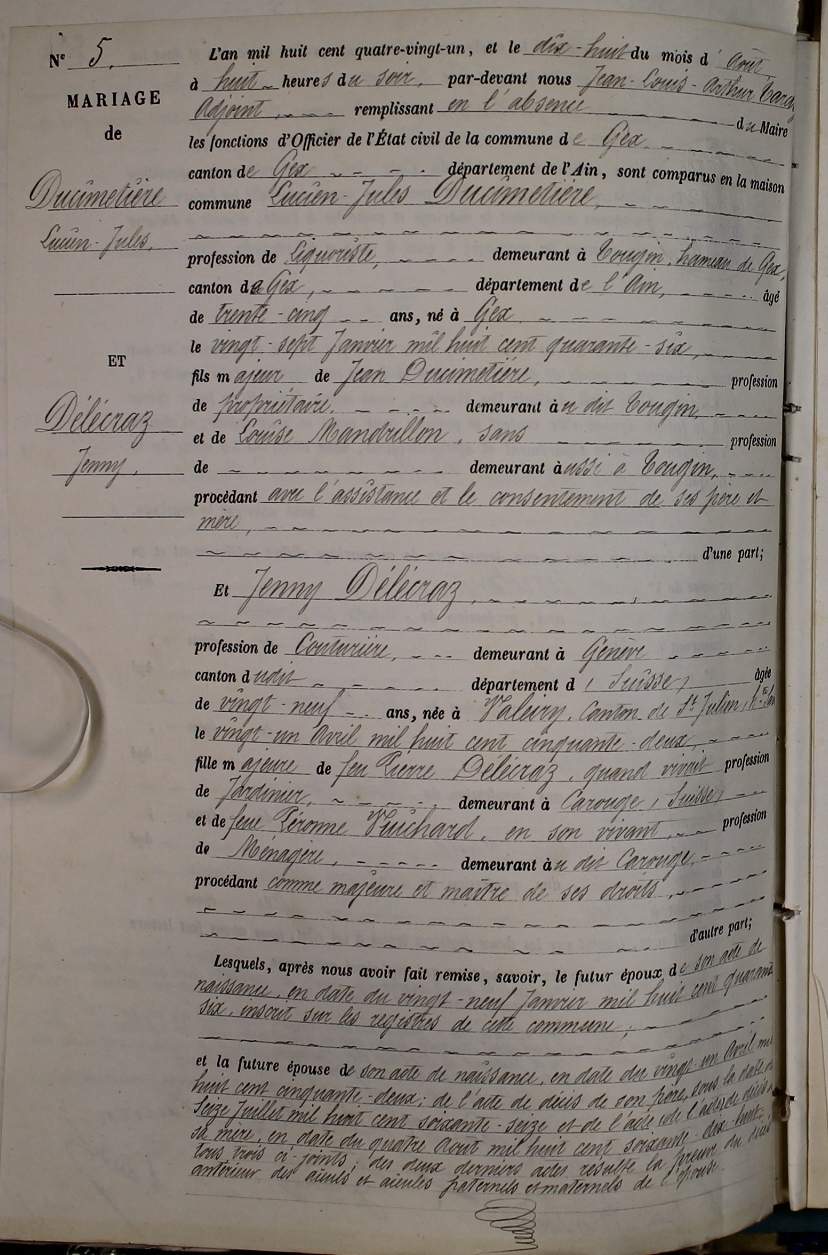 N° 5.
MARIAGE
de
Ducimetière
Lucien-Jules,
ET
Délécraz
Jenny.
L'an mil huit cent quatre-vingt-un, et le dix-huit du mois d'Août,
à huit heures du soir, par-devant nous Jean-Louis-Arthur
Adjoint, remplissant en l'absence du Maire
les fonctions d'Officier de l'État civil de la commune de Gex
canton de Gex département de l'Ain, sont comparus en la maison
commune Lucien-Jules Ducimetière,
profession de liquoriste, demeurant à Tougin, hameau de Gex,
canton de Gex, département de l'Ain, âgé
de trente-cinq ans, né à Gex
le vingt-sept Janvier mil huit cent quarante-six,
fils majeur de Jean Ducimetière, profession
de propriétaire, demeurant au dit Tougin,
et de Louise Mandrillon, sans profession
de demeurant aussi à Tougin,
procédant avec l'assistance et le consentement de ses père et
mère,
d'une part;
Et Jenny Délécraz,
profession de Couturière, demeurant à Genève
canton dudit département d (Suisse) âgée
de vingt-neuf ans, née à Valeiry, Canton de St Julien,
le vingt-un Avril mil huit cent cinquante-deux,
fille majeure de feu Pierre Délécraz, quand vivait profession
de Jardinier, demeurant à Carouge (Suisse)
et de feue Péronne Vuichard, en son vivant, profession
de Ménagère, demeurant au dit Carouge,
procédant comme majeure et maître de ses droits,
d'autre part;
Lesquels, après nous avoir fait remise, savoir, le futur époux, de son acte de
naissance, en date du vingt-neuf Janvier mil huit cent quarante
six, inscrit sur les registres de cette commune;
et la future épouse de son acte de naissance, en date du vingt-un Avril mil
huit cent cinquante-deux; de l'acte de décès de son père, sous la date du
Seize Juillet mil huit cent soixante-seize et de l'acte de l'acte de décès de
sa mère, en date du quatre Août mil huit cent soixante-dix-huit,
tous trois ci-joints; des deux derniers actes résulte la preuve du décès
antérieur des aïeuls et aïeules paternels et maternels de l'épouse.